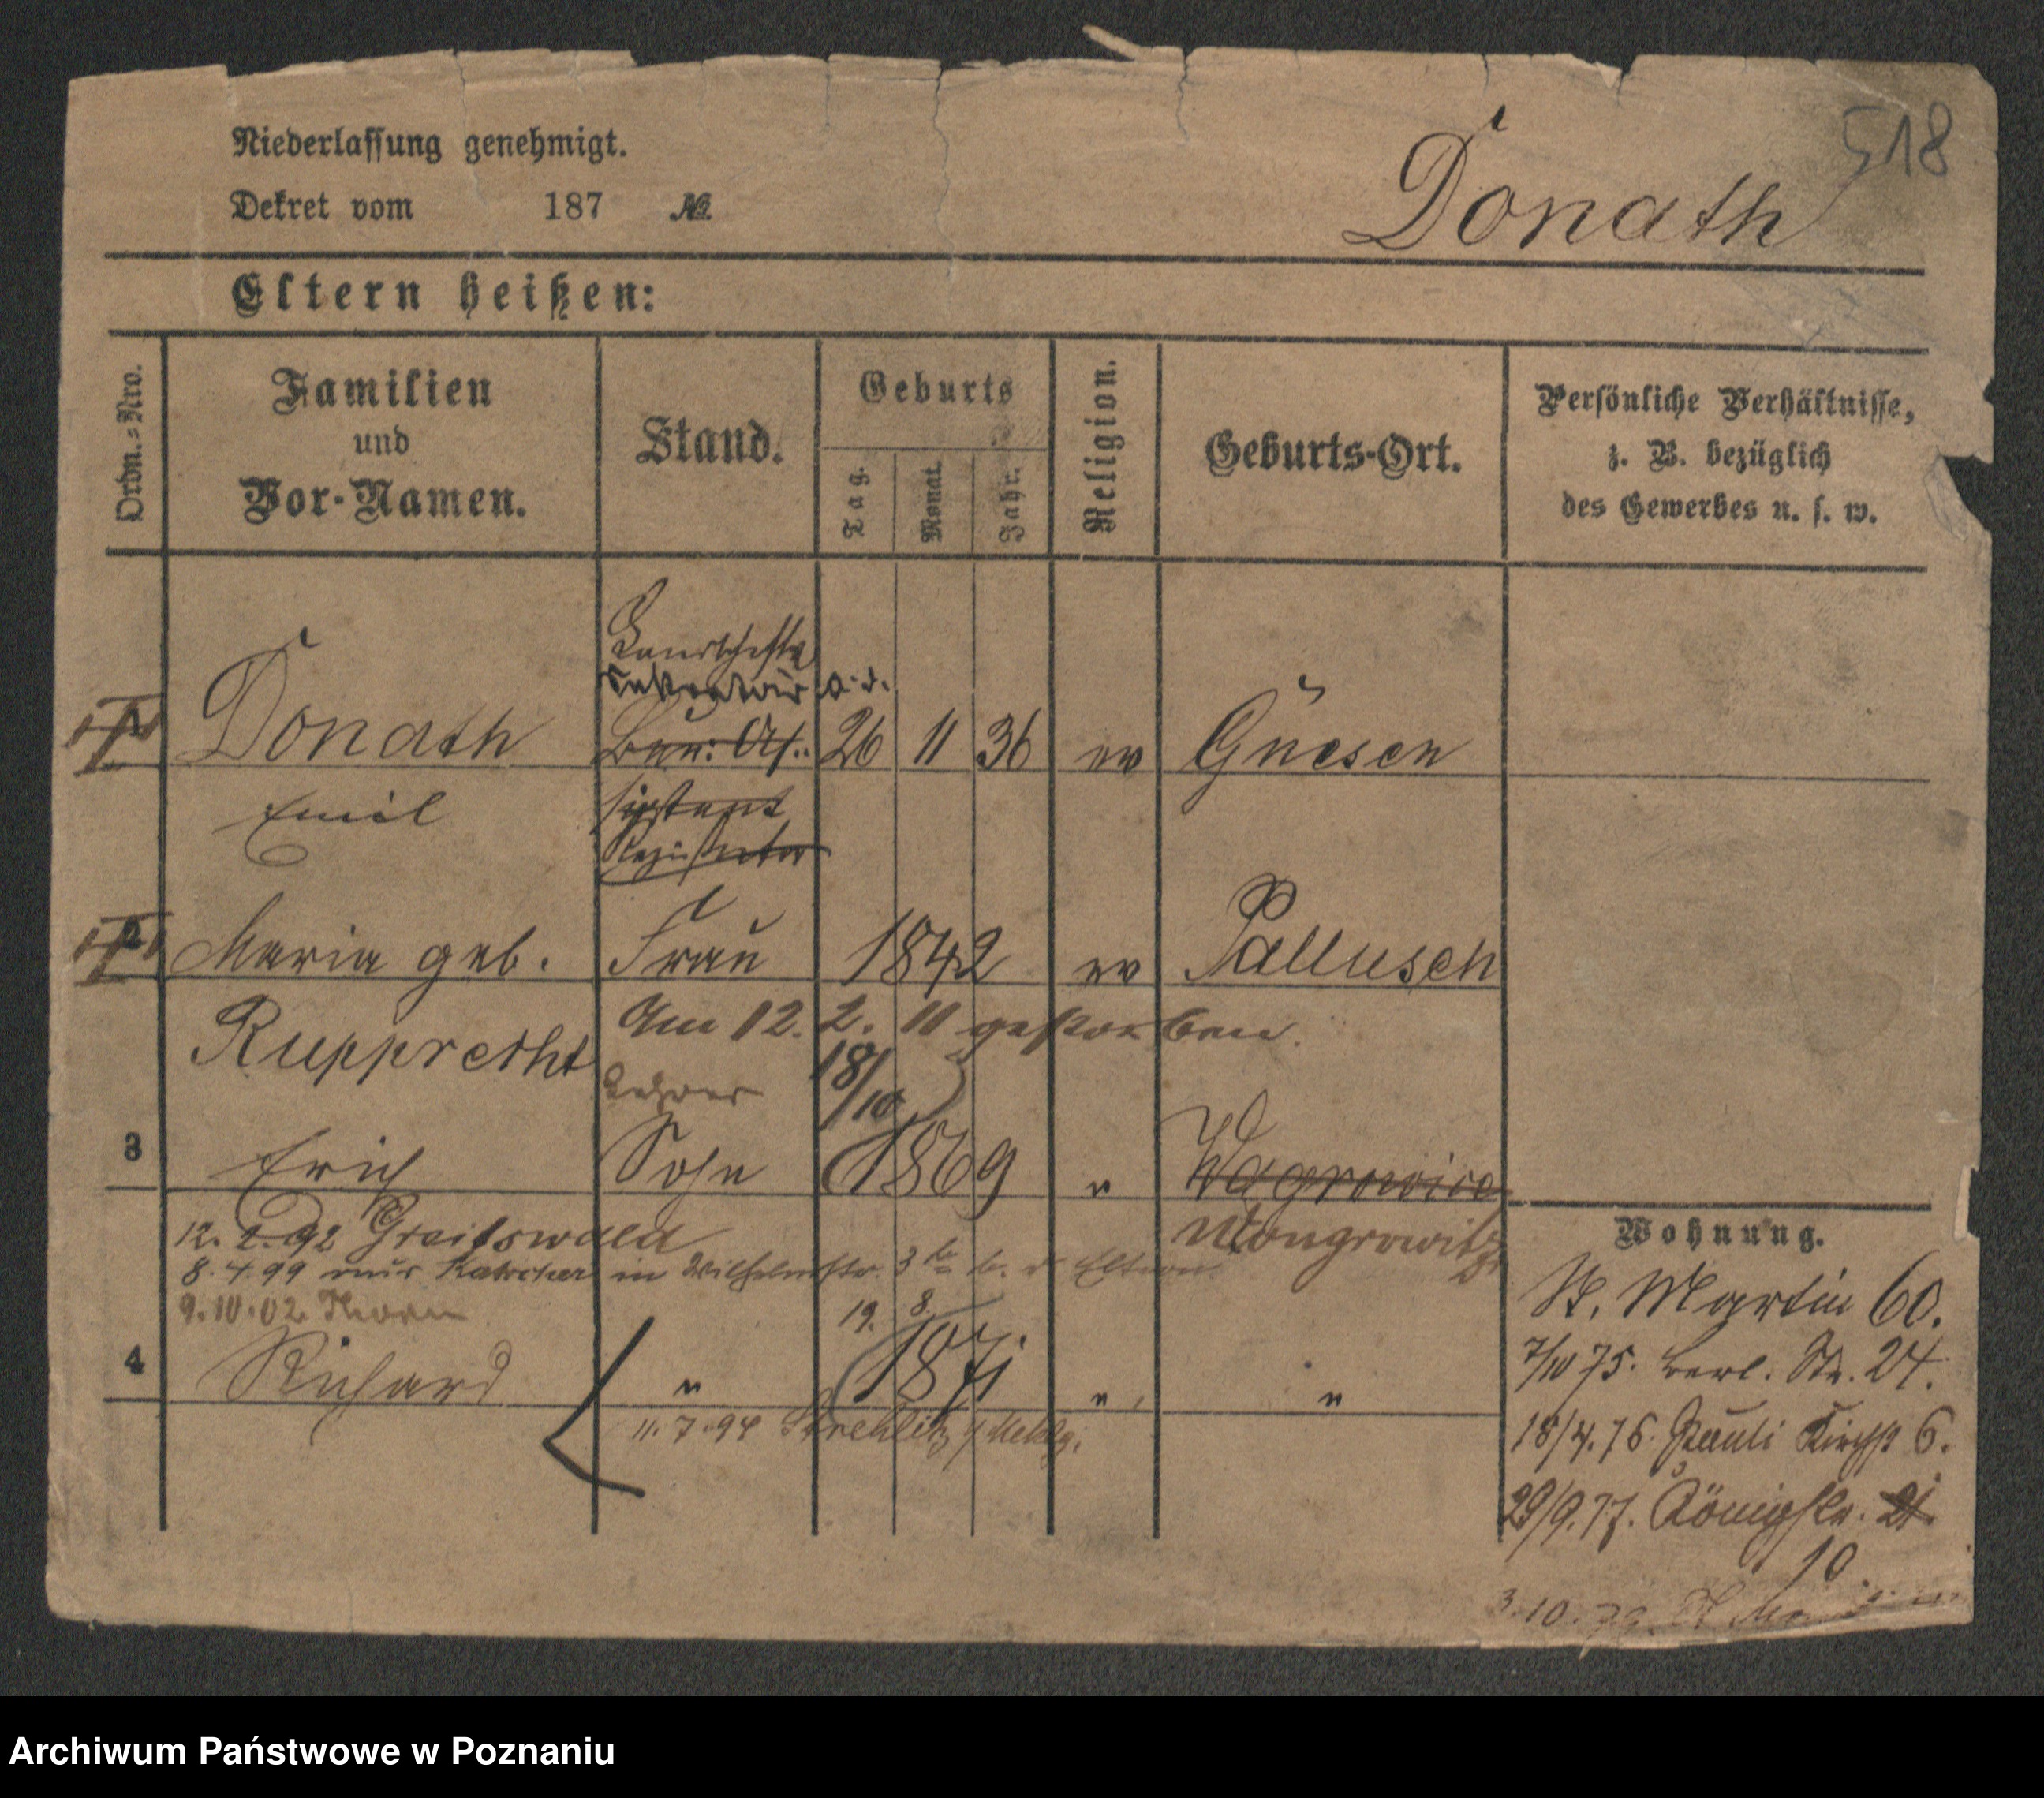 518
Niederlassung genehmigt.
Dekret vom 187 №
Donath
Eltern heißen:
Ordn.=Nro.
Familien
und
Vor-Namen.
Stand.
Geburts
Tag.
Monat.
Jahr.
Religion.
Geburts-Ort.
Persönliche Verhältnisse,
z. B. bezüglich
des Gewerbes u. s. w.
Landschafts
a. d.
1 Donath Bür: As: 26 11 36 ev Gnesen
Emil sistent
Registrator
2 Maria geb. Frau 1842 ev Pallusch
Rupprecht Am 12. 2. 11 gestorben.
Lehrer 18/10
3 Erich Sohn 1869 " Wagrowice
12. 2. 92 Greifswald Wongrowitz
8. 4. 99 aus in Wilhelmstr. 3 b. d Eltern
9. 10. 02 Thorn
19. 8.
4 Richard " 1871 " "
11. 7. 94 Strehlitz
Wohnung.
St. Martin 60.
7/10 75. Berl. Str. 24.
18/4. 76. Pauli Kirchst 6.
29/9. 77. Königstr. 21.
10.
3. 10. 79
Archiwum Państwowe w Poznaniu